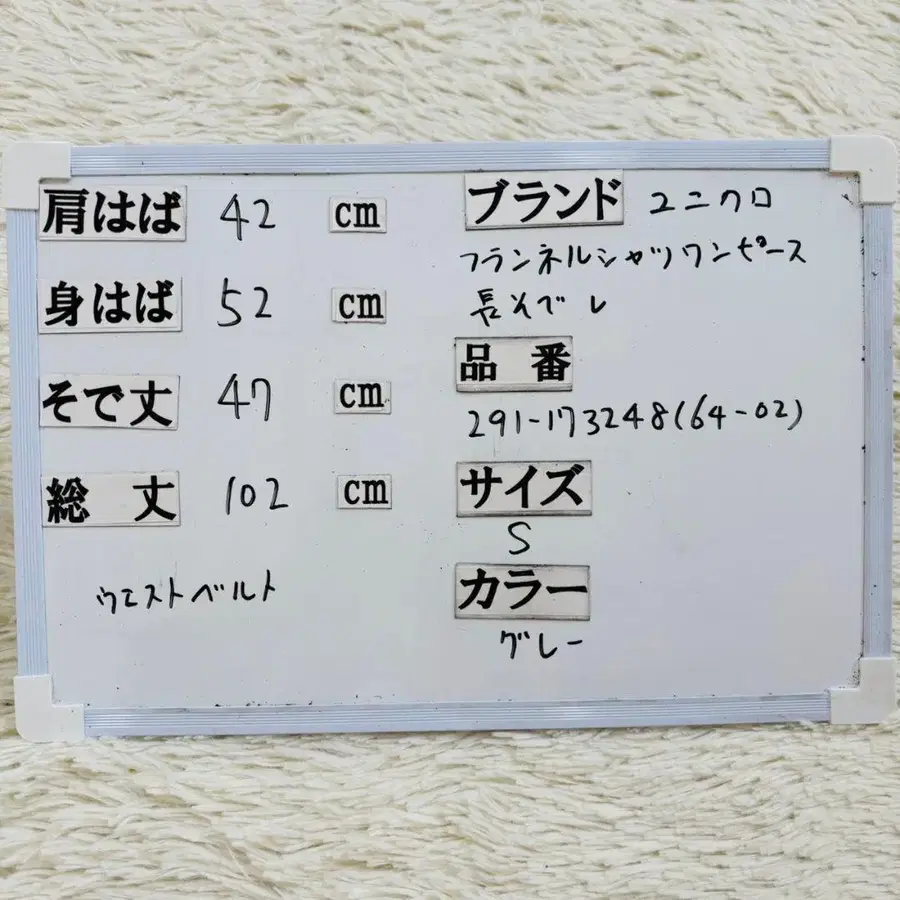 肩はば 42 cm
身はば 52 cm
そで丈 47 cm
総丈 102 cm
ウエストベルト
ブランド ユニクロ
フランネルシャツワンピース
長そで
品番
291-173248(64-02)
サイズ
S
カラー
グレー